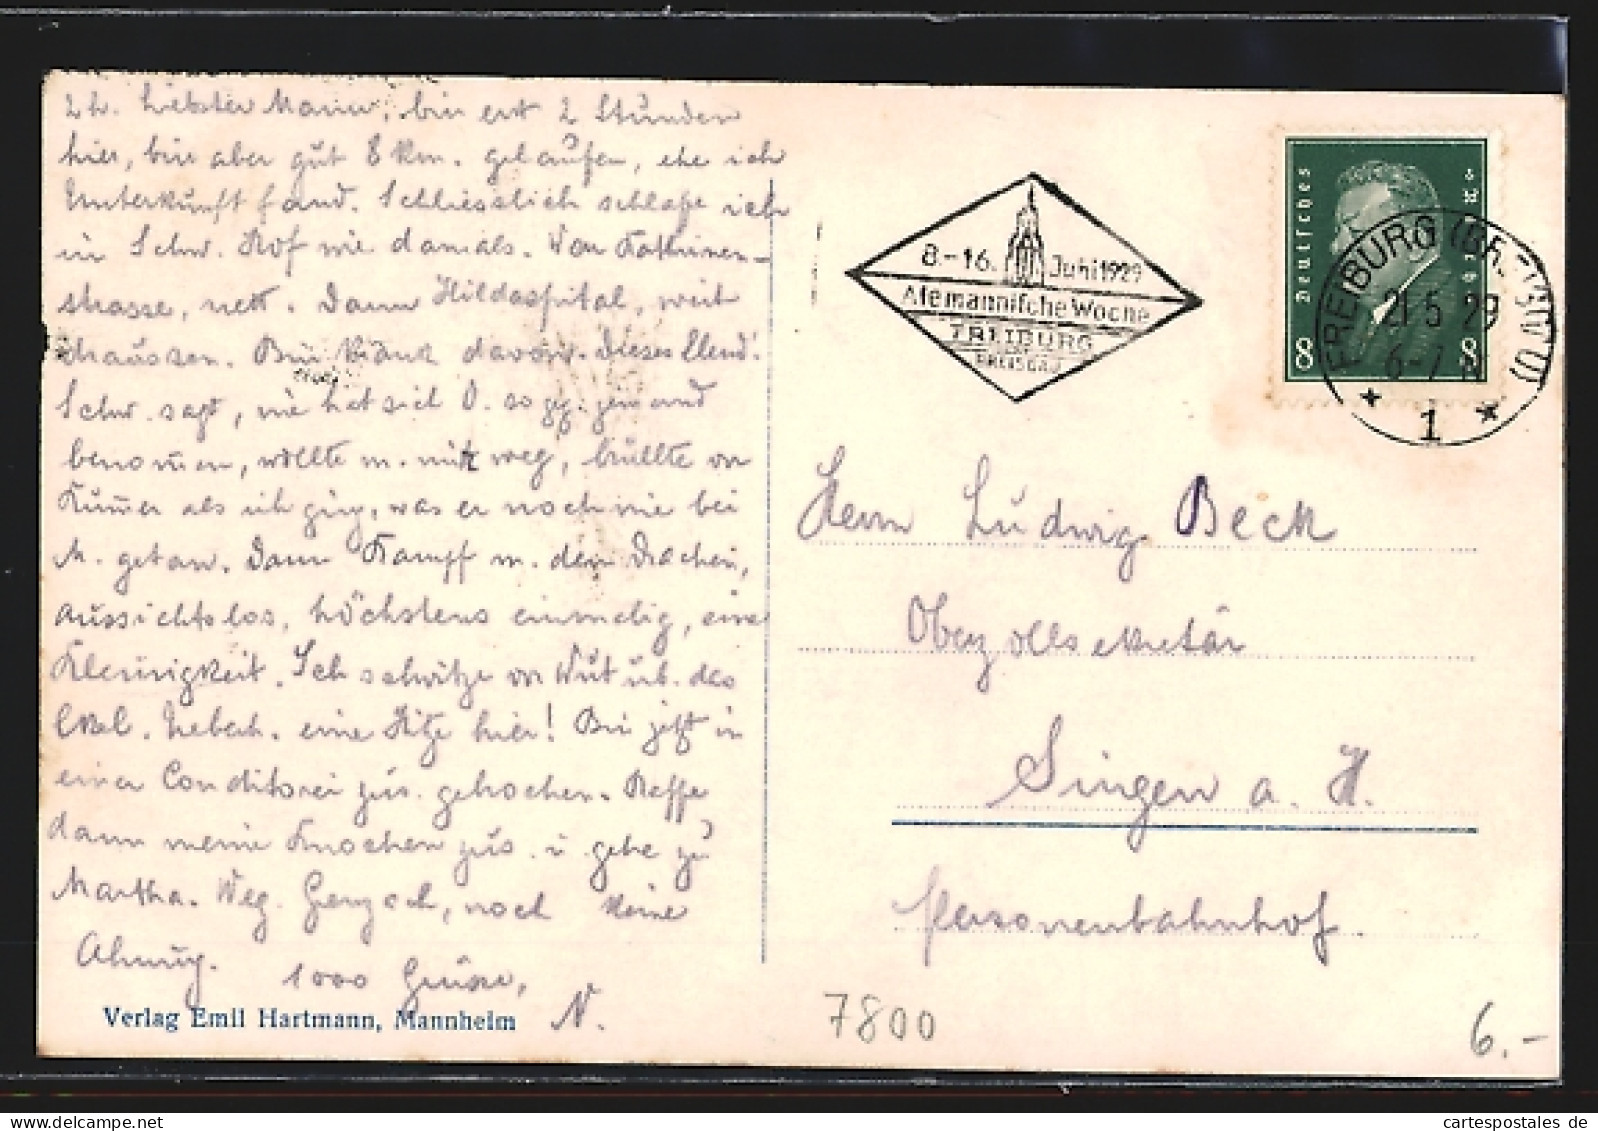 2 h. Liebster Mann, bin erst 2 Stunden
hier, bin aber gut 8 Km. gelaufen, ehe ich
Unterkunft fand. Schliesslich schlafe ich
in Schw. Hof wie damals. Von Katharinen-
strasse, nett. Dann Hildaspital, weit
draussen. Bin krank davon. Dieses Elend!
Schw. sagt, nie hat sich O. so gg. jemand
benommen, wollte m. mit weg, brüllte vor
Kummer als ich ging, was er noch nie bei
M. getan. Dann Kampf m. dem Drachen,
aussichtslos, höchstens einmalig, eine
Kleinigkeit. Ich schwitze vor Wut üb. das
Ekel. Nebenb. eine Hitze hier! Bin jetzt in
einer Conditorei zus. gebrochen. Raffe
dann meine Knochen zus. u. gehe zu
Martha. Weg. noch keine
Ahnung. 1000 Grüsse,
N.
Verlag Emil Hartmann, Mannheim
8.-16. Juni 1929
Alemannische Woche
FREIBURG
BREISGAU
Deutsches Reich
8 8
FREIBURG (BREISGAU)
21.5.29
6-7 N
* 1 *
Herrn Ludwig Beck
Oberzollsekretär
Singen a. H.
Personenbahnhof.
7800
6.-
cartespostales.de